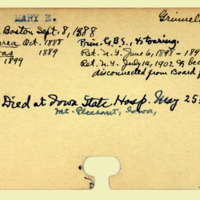 MARY E.
Grinnell
Boston Sept. 8, 1888
area Oct. 1888
Prin. G.B.S., Touring.
as 1889
Ret. N.Y. June 6, 1898 - 189
1899
Ret. N.Y. July 14, 1902 & bec
disconnected from Board
Died at Iowa State Hosp. May 25
Mt. Pleasant, Iowa,